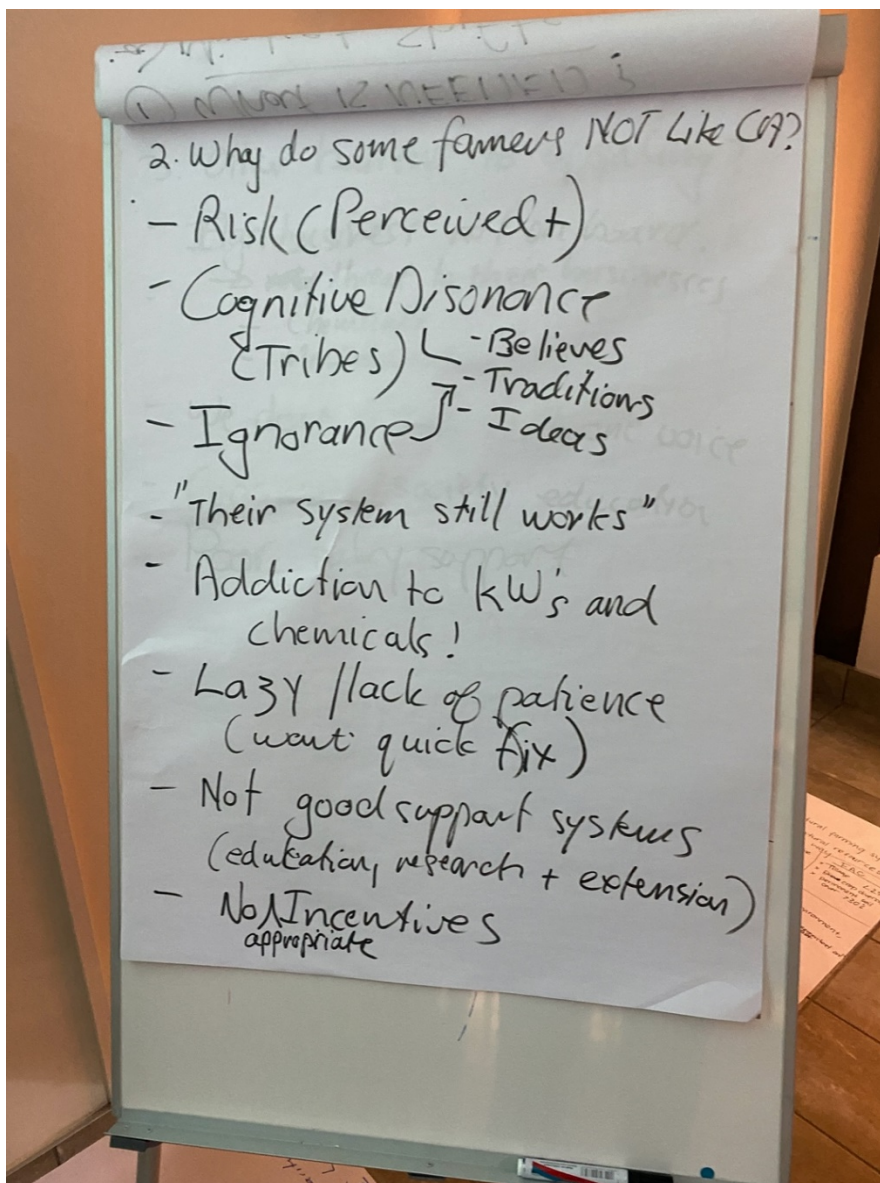 2. Why do some famers NOT Like CA?
- Risk (Perceived +)
- Cognitive Disonance
(Tribes) - Believes
- Traditions
- Ignorance - Ideas
- "Their system still works"
- Addiction to kW's and
chemicals!
- Lazy / lack of patience
(want quick fix)
- Not good support systems
(education, research + extension)
- No Incentives
appropriate